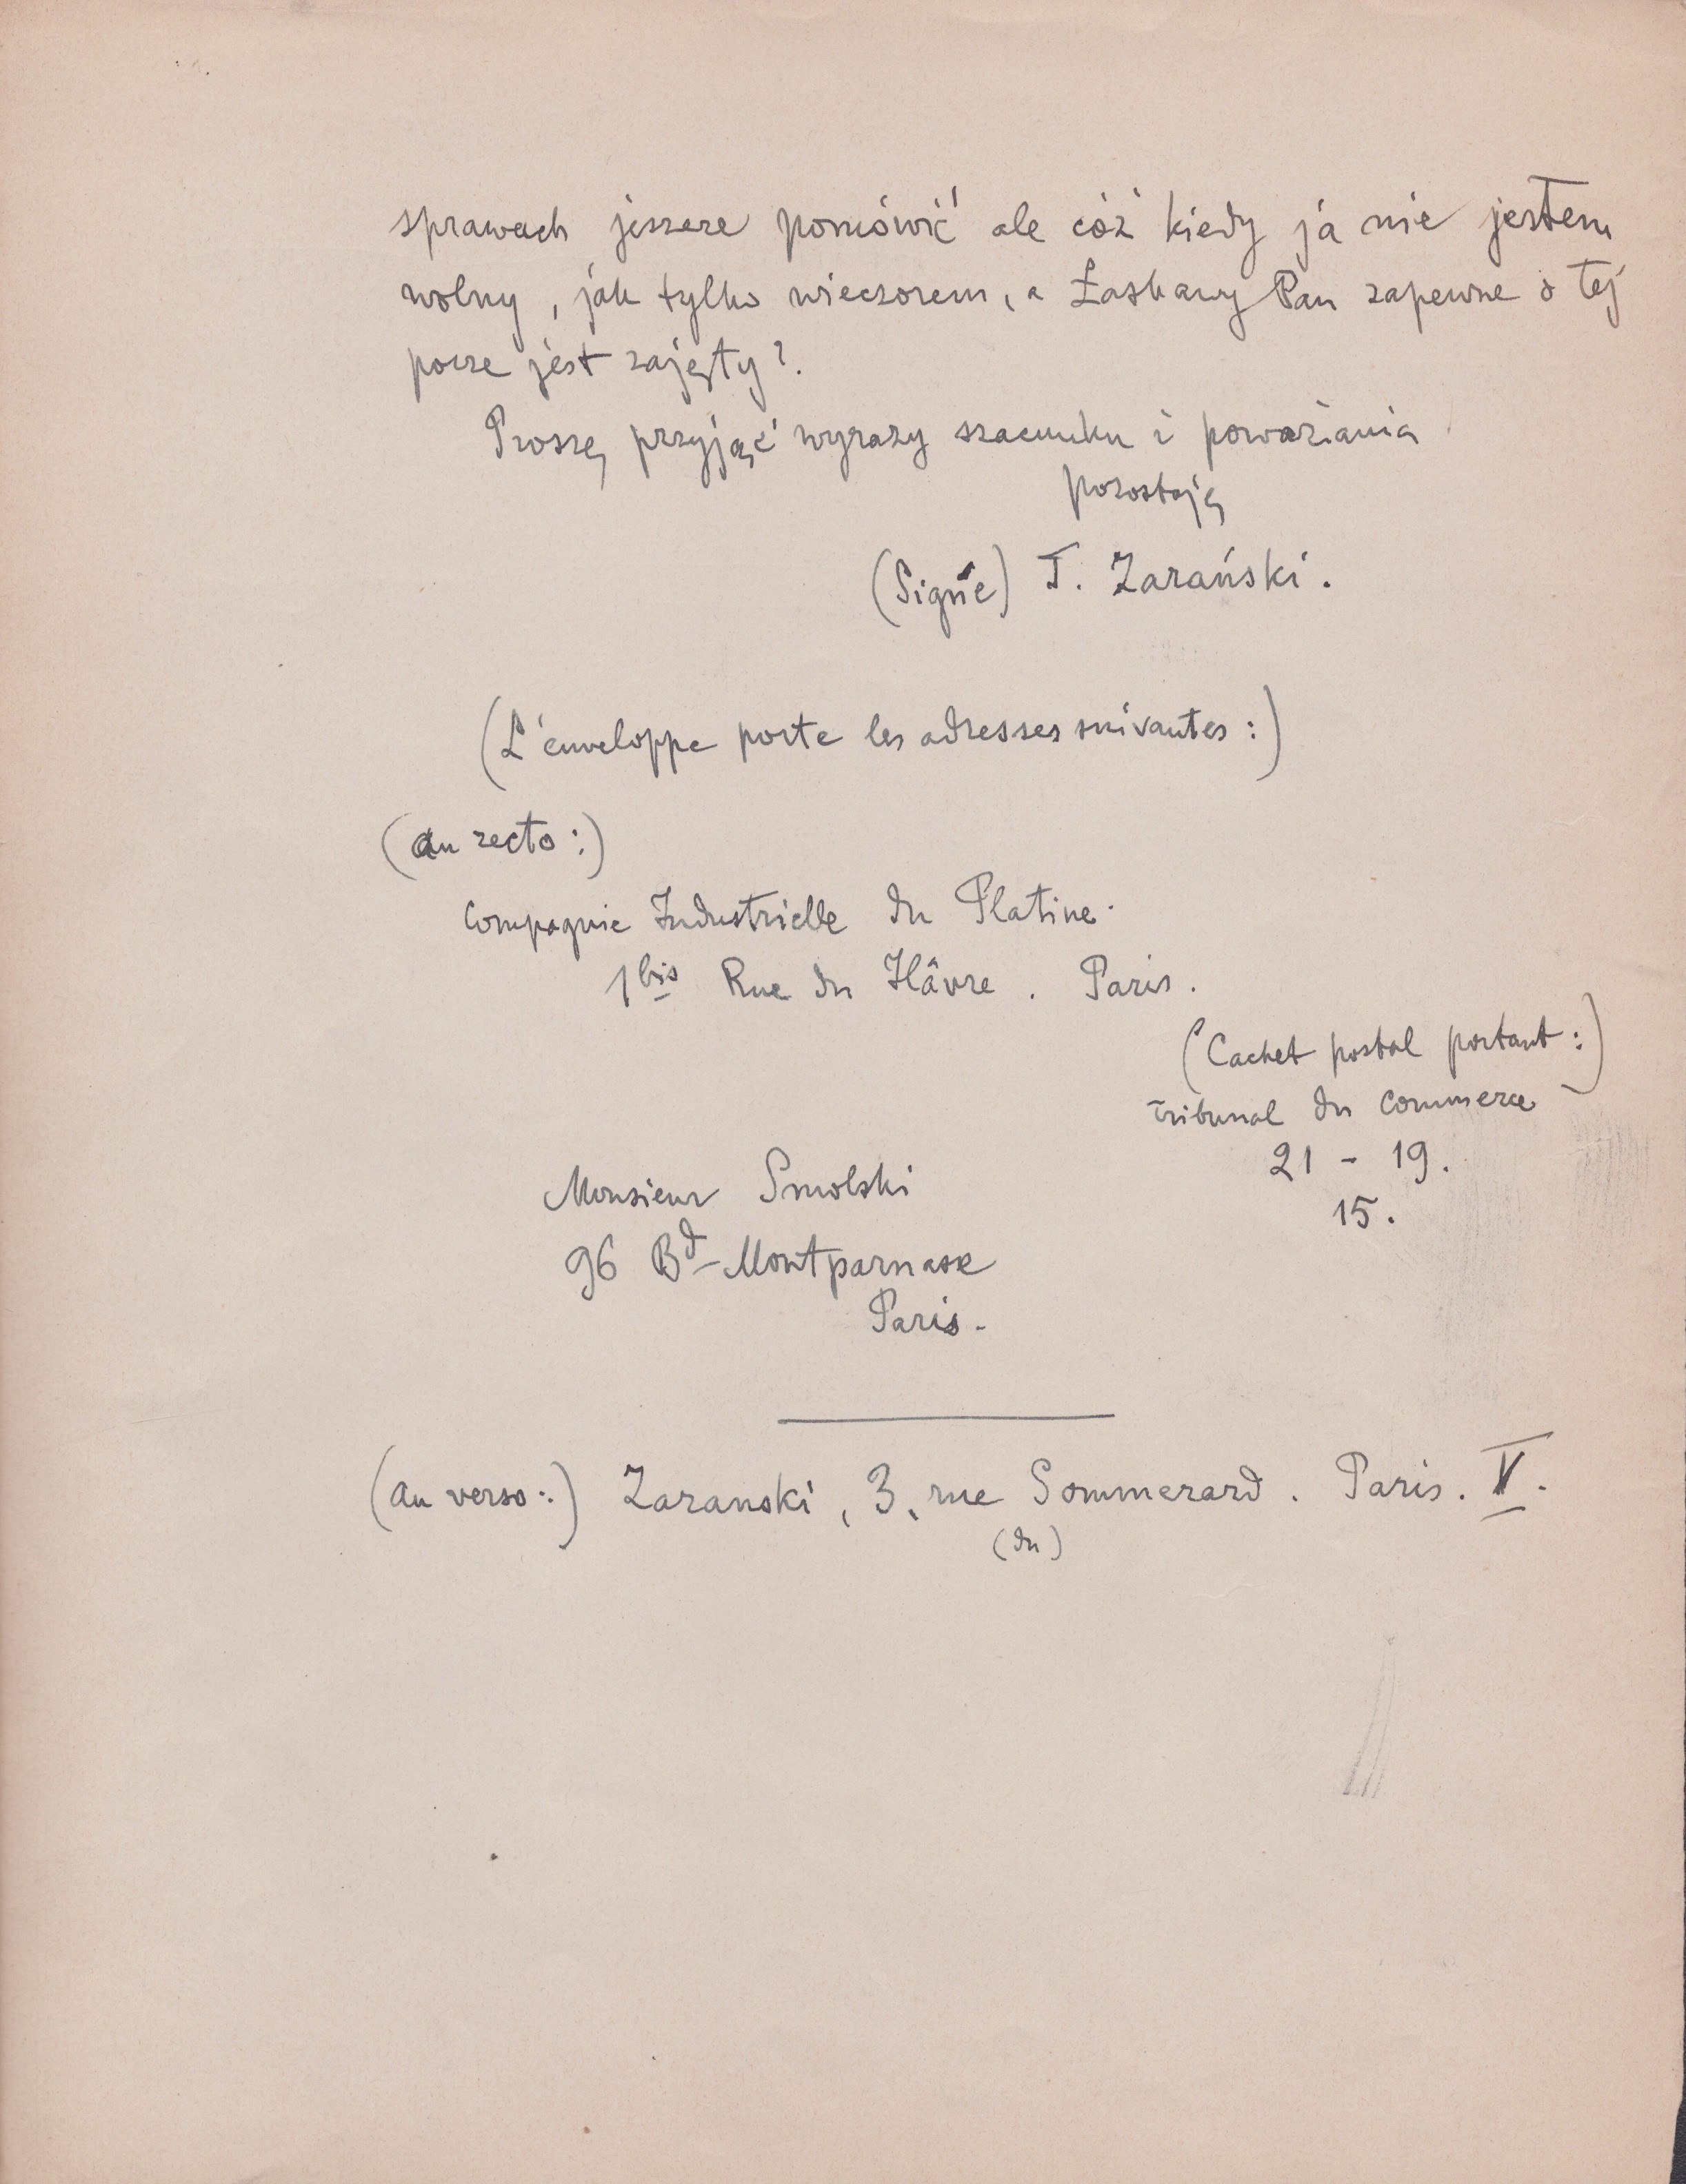 sprawach jeszcze pomówić ale cóż kiedy ja nie jestem
wolny, jak tylko wieczorem, a Łaskawy Pan zapewne o tej
porze jest zajęty?.
Proszę przyjąć wyrazy szacunku i poważania
pozostaję
(Signé) T. Zarański.
(L'enveloppe porte les adresses suivantes:)
(au recto:)
Compagnie Industrielle du Platine.
1bis Rue du Hâvre. Paris.
(Cachet postal portant:)
Tribunal du Commerce
21 - 19.
15.
Monsieur Smolski
96 Bd-Montparnase
Paris.
(au verso:) Zaranski, 3, rue Sommerard. Paris. V.
(du)